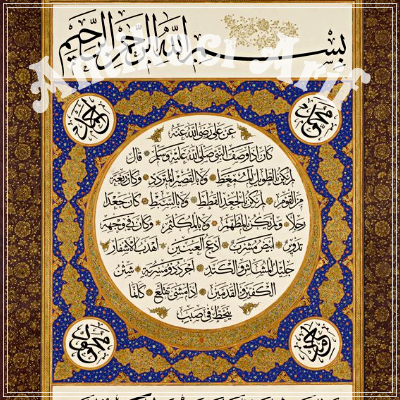 بسم الله الرحمن الرحيم
Arif
عن علي رضي الله عنه
كان اذا وصف النبي صلى الله عليه وسلم قال
لم يكن بالطويل الممغط ولا بالقصير المتردد وكان ربعة
من القوم لم يكن بالجعد القطط ولا بالسبط كان جعدا
رجلا ولم يكن بالمطهم ولا بالمكلثم وكان في وجهه
تدوير ابيض مشرب ادعج العينين اهدب الاشفار
جليل المشاش والكتد اجرد ذو مسربة شثن
الكفين والقدمين اذا مشى تقلع كانما
ينحط في صبب